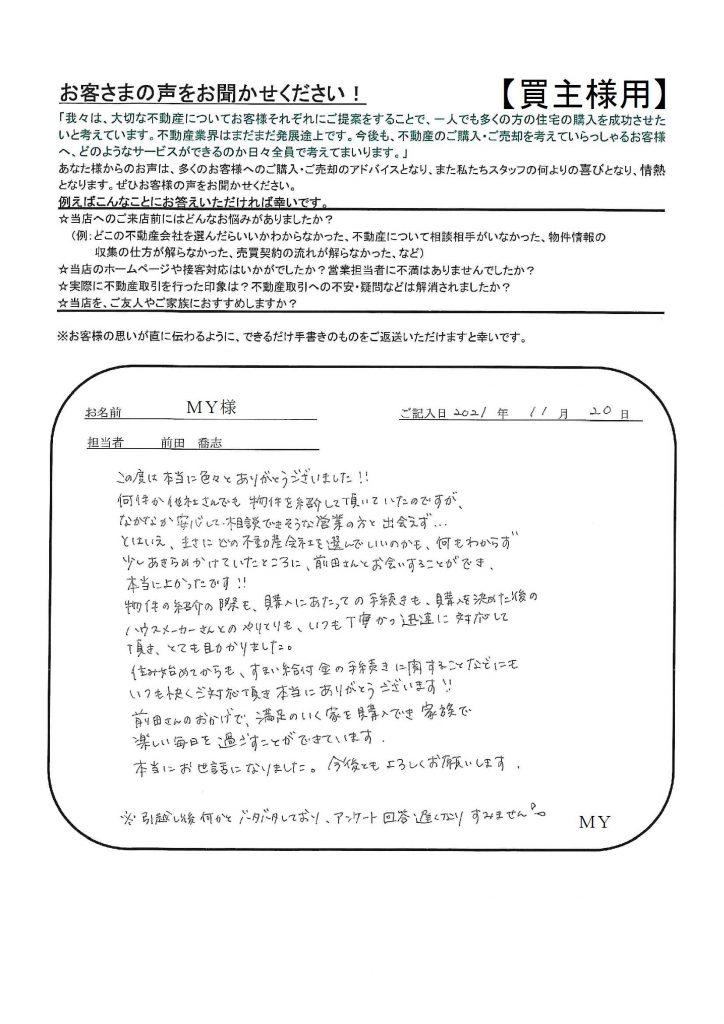 お客さまの声をお聞かせください！ 【買主様用】
「我々は、大切な不動産についてお客様それぞれにご提案をすることで、一人でも多くの方の住宅の購入を成功させた
いと考えています。不動産業界はまだまだ発展途上です。今後も、不動産のご購入・ご売却を考えていらっしゃるお客様
へ、どのようなサービスができるのか日々全員で考えてまいります。」
あなた様からのお声は、多くのお客様へのご購入・ご売却のアドバイスとなり、また私たちスタッフの何よりの喜びとなり、情熱
となります。ぜひお客様の声をお聞かせください。
例えばこんなことにお答えいただければ幸いです。
☆当店へのご来店前にはどんなお悩みがありましたか？
（例：どこの不動産会社を選んだらいいかわからなかった、不動産について相談相手がいなかった、物件情報の
収集の仕方が解らなかった、売買契約の流れが解らなかった、など）
☆当店のホームページや接客対応はいかがでしたか？営業担当者に不満はありませんでしたか？
☆実際に不動産取引を行った印象は？不動産取引への不安・疑問などは解消されましたか？
☆当店を、ご友人やご家族におすすめしますか？
※お客様の思いが直に伝わるように、できるだけ手書きのものをご返送いただけますと幸いです。
お名前 MY様 ご記入日 2021 年 11 月 20 日
担当者 前田 喬志
この度は本当に色々とありがとうございました!!
何件か他社さんでも物件を紹介して頂いていたのですが、
なかなか安心して相談できそうな営業の方と出会えず…
とはいえ、まさにどの不動産会社を選んでいいのかも、何もわからず
少しあきらめかけていたところに、前田さんとお会いすることができ、
本当によかったです!!
物件の紹介の際も、購入にあたっての手続きも、購入を決めた後の
ハウスメーカーさんとのやりとりも、いつも丁寧かつ迅速に対応して
頂き、とても助かりました。
住み始めてからも、すまい給付金の手続きに関することなどにも
いつも快くご対応頂き本当にありがとうございます!!
前田さんのおかげで、満足のいく家を購入でき家族で
楽しい毎日を過ごすことができています.
本当にお世話になりました。今後ともよろしくお願いします.
※引越し後何かとバタバタしており、アンケート回答遅くなりすみません
MY